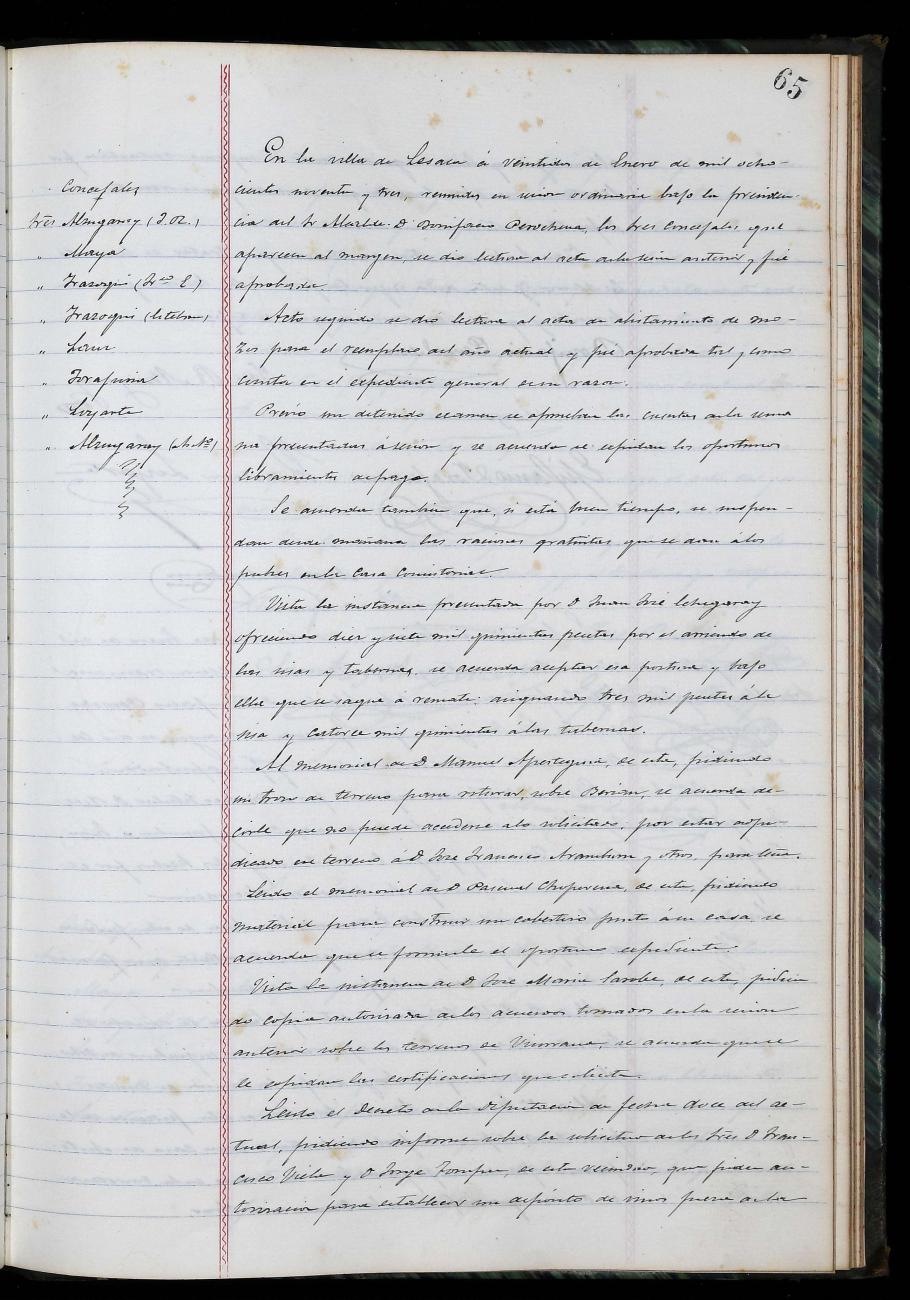 65
Concejales
Sres Almagaray (J. R.)
" Maya
" Irazoqui (Fco E.)
" Irazoqui (Esteban)
"
"
" Loyarte
" Almagaray (M. Ma)
En la villa de Lesaca á veintidos de Enero de mil ocho-
cientos noventa y tres, reunidos en sesion ordinaria bajo la presiden-
cia del Sr Alcalde D Bonifacio Perochena, los Sres Concejales que
aparecen al margen, se dio lectura al acta de la sesion anterior y fué
aprobada.
Acto seguido se dio lectura al acta de alistamiento de mo-
zos para el reemplazo del año actual y fué aprobada tal y como
consta en el expediente general de su razon.
Prévio un detenido examen se aprueban las cuentas de la sema
na presentadas á sesion y se acuerda se expidan los oportunos
libramientos de pago.
Se acuerda tambien que, si está buen tiempo, se suspen-
dan desde mañana las raciones gratuitas que se dan á los
pobres en la Casa Consistorial.
Vista la instancia presentada por D Juan José Echegaray
ofreciendo diez y siete mil quinientas pesetas por el arriendo de
las sisas y tabernas, se acuerda aceptar esa postura y bajo
ella que se saque á remate; asignando tres mil pesetas á la
sisa y catorce mil quinientas á las tabernas.
Al memorial de D Manuel Apesteguia, de esta, pidiendo
un trozo de terreno para roturar, sobre Berian, se acuerda de-
cirle que no puede accederse a lo solicitado, por estar adju-
dicado ese terreno á D José Francisco Aramburu y otros, para leña.
Leido el memorial de D Pascual Choperena, de esta, pidiendo
material para construir un cobertizo junto á su casa se
acuerda que se formule el oportuno expediente.
Vista la instancia de D José Maria Sarobe, de esta, pidien
do copia autorizada de los acuerdos tomados en la sesion
anterior sobre los terrenos de se acuerda que se
le expidan las certificaciones que solicita.
Leido el Decreto de la Diputacion de fecha doce del ac-
tual, pidiendo informe sobre la solicitud de los Sres D Fran-
cisco Viela y D Jorge de esta vecindad, que piden au-
torizacion para establecer un depósito de vinos fuera de la